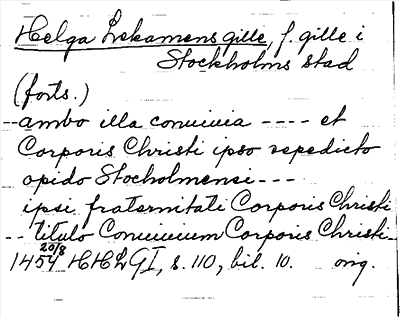 Helga Lekamens gille, f. gille i
Stockholms stad
(forts.)
-- ambo illa conuiuia ---- et
Corporis Christi ipso sepedicto
opido Stocholmensi ---
ipsi fraternitati Corporis Christi
-- titulo Conuiuium Corporis Christi --
20/8
1454 HHLGI, s. 110, bil. 10. orig.